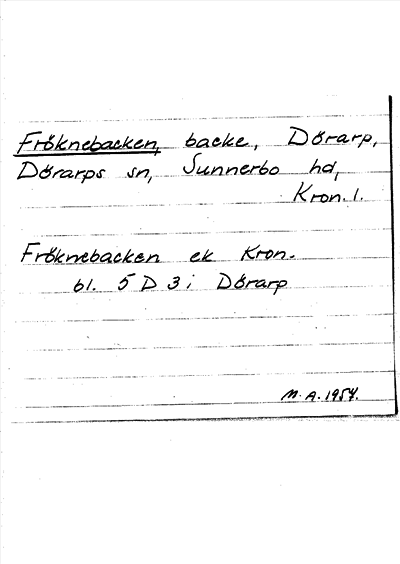 Fröknebacken, backe, Dörarp,
Dörarps sn, Sunnerbo hd,
Kron. l.
Fröknebacken ek Kron.
bl. 5 D 3 i Dörarp
M. A. 1954.